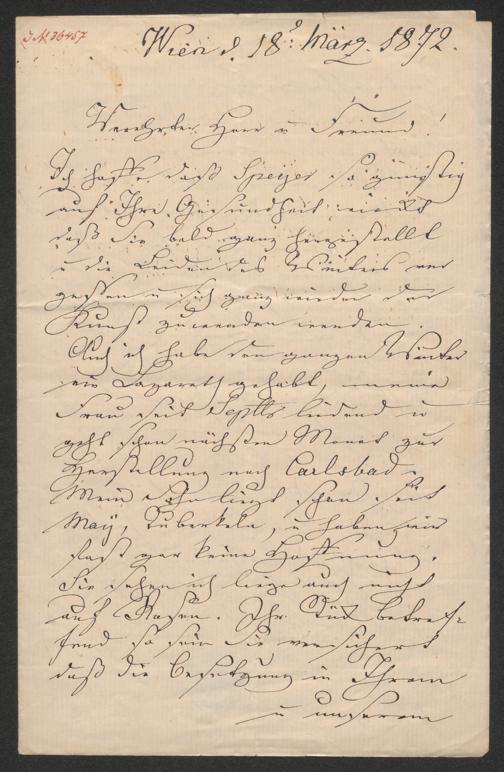 J.N. 36457
Wien d. 18t März. 1872.
Verehrter Herr u Freund!
Ich hoffe daß Speyer so günstig
auf Ihre Gesundheit wirkt
daß Sie bald ganz hergestellt
u die Leiden des Winters ver
gessen u sich ganz wieder der
Kunst zuwenden werden
Auch ich habe den ganzen Winter
ein Lazareth gehabt, meine
Frau seit Septbr leidend u
geht schon nächsten Monat zur
Herstellung nach Carlsbad.
Mein Sohn liegt schon seit
Maÿ, Tuberkeln, u haben wir
fast gar keine Hoffnung.
Sie sehen ich liege auch nicht
auf Rosen. Ihr Stück betref-
fend so sein Sie versichert
daß die Besetzung in Ihrem
u unserem